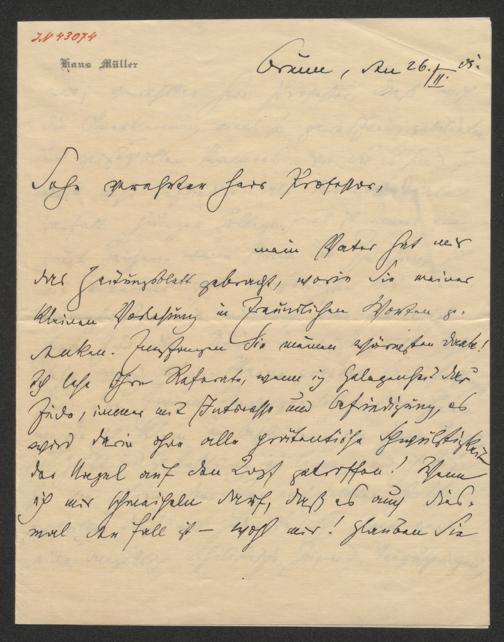 J.N 43074
Hans Müller
Brünn, den 26./II. 05.
Sehr verehrter Herr Professor,
mein Vater hat mir
das Zeitungsblatt gebracht, worin Sie meiner
kleinen Vorlesung in freundlichen Worten ge-
denken. Empfangen Sie meinen wärmsten Dank!
Ich lese Ihre Referate, wenn ich Gelegenheit dazu
finde, immer mit Interesse und Befriedigung, es
wird darin ohne alle prätentiöse Schwülstigkeit
der Nagel auf den Kopf getroffen! Wenn
ich mir schmeicheln darf, daß es auch dies-
mal der Fall ist – wohl mir! Glauben Sie